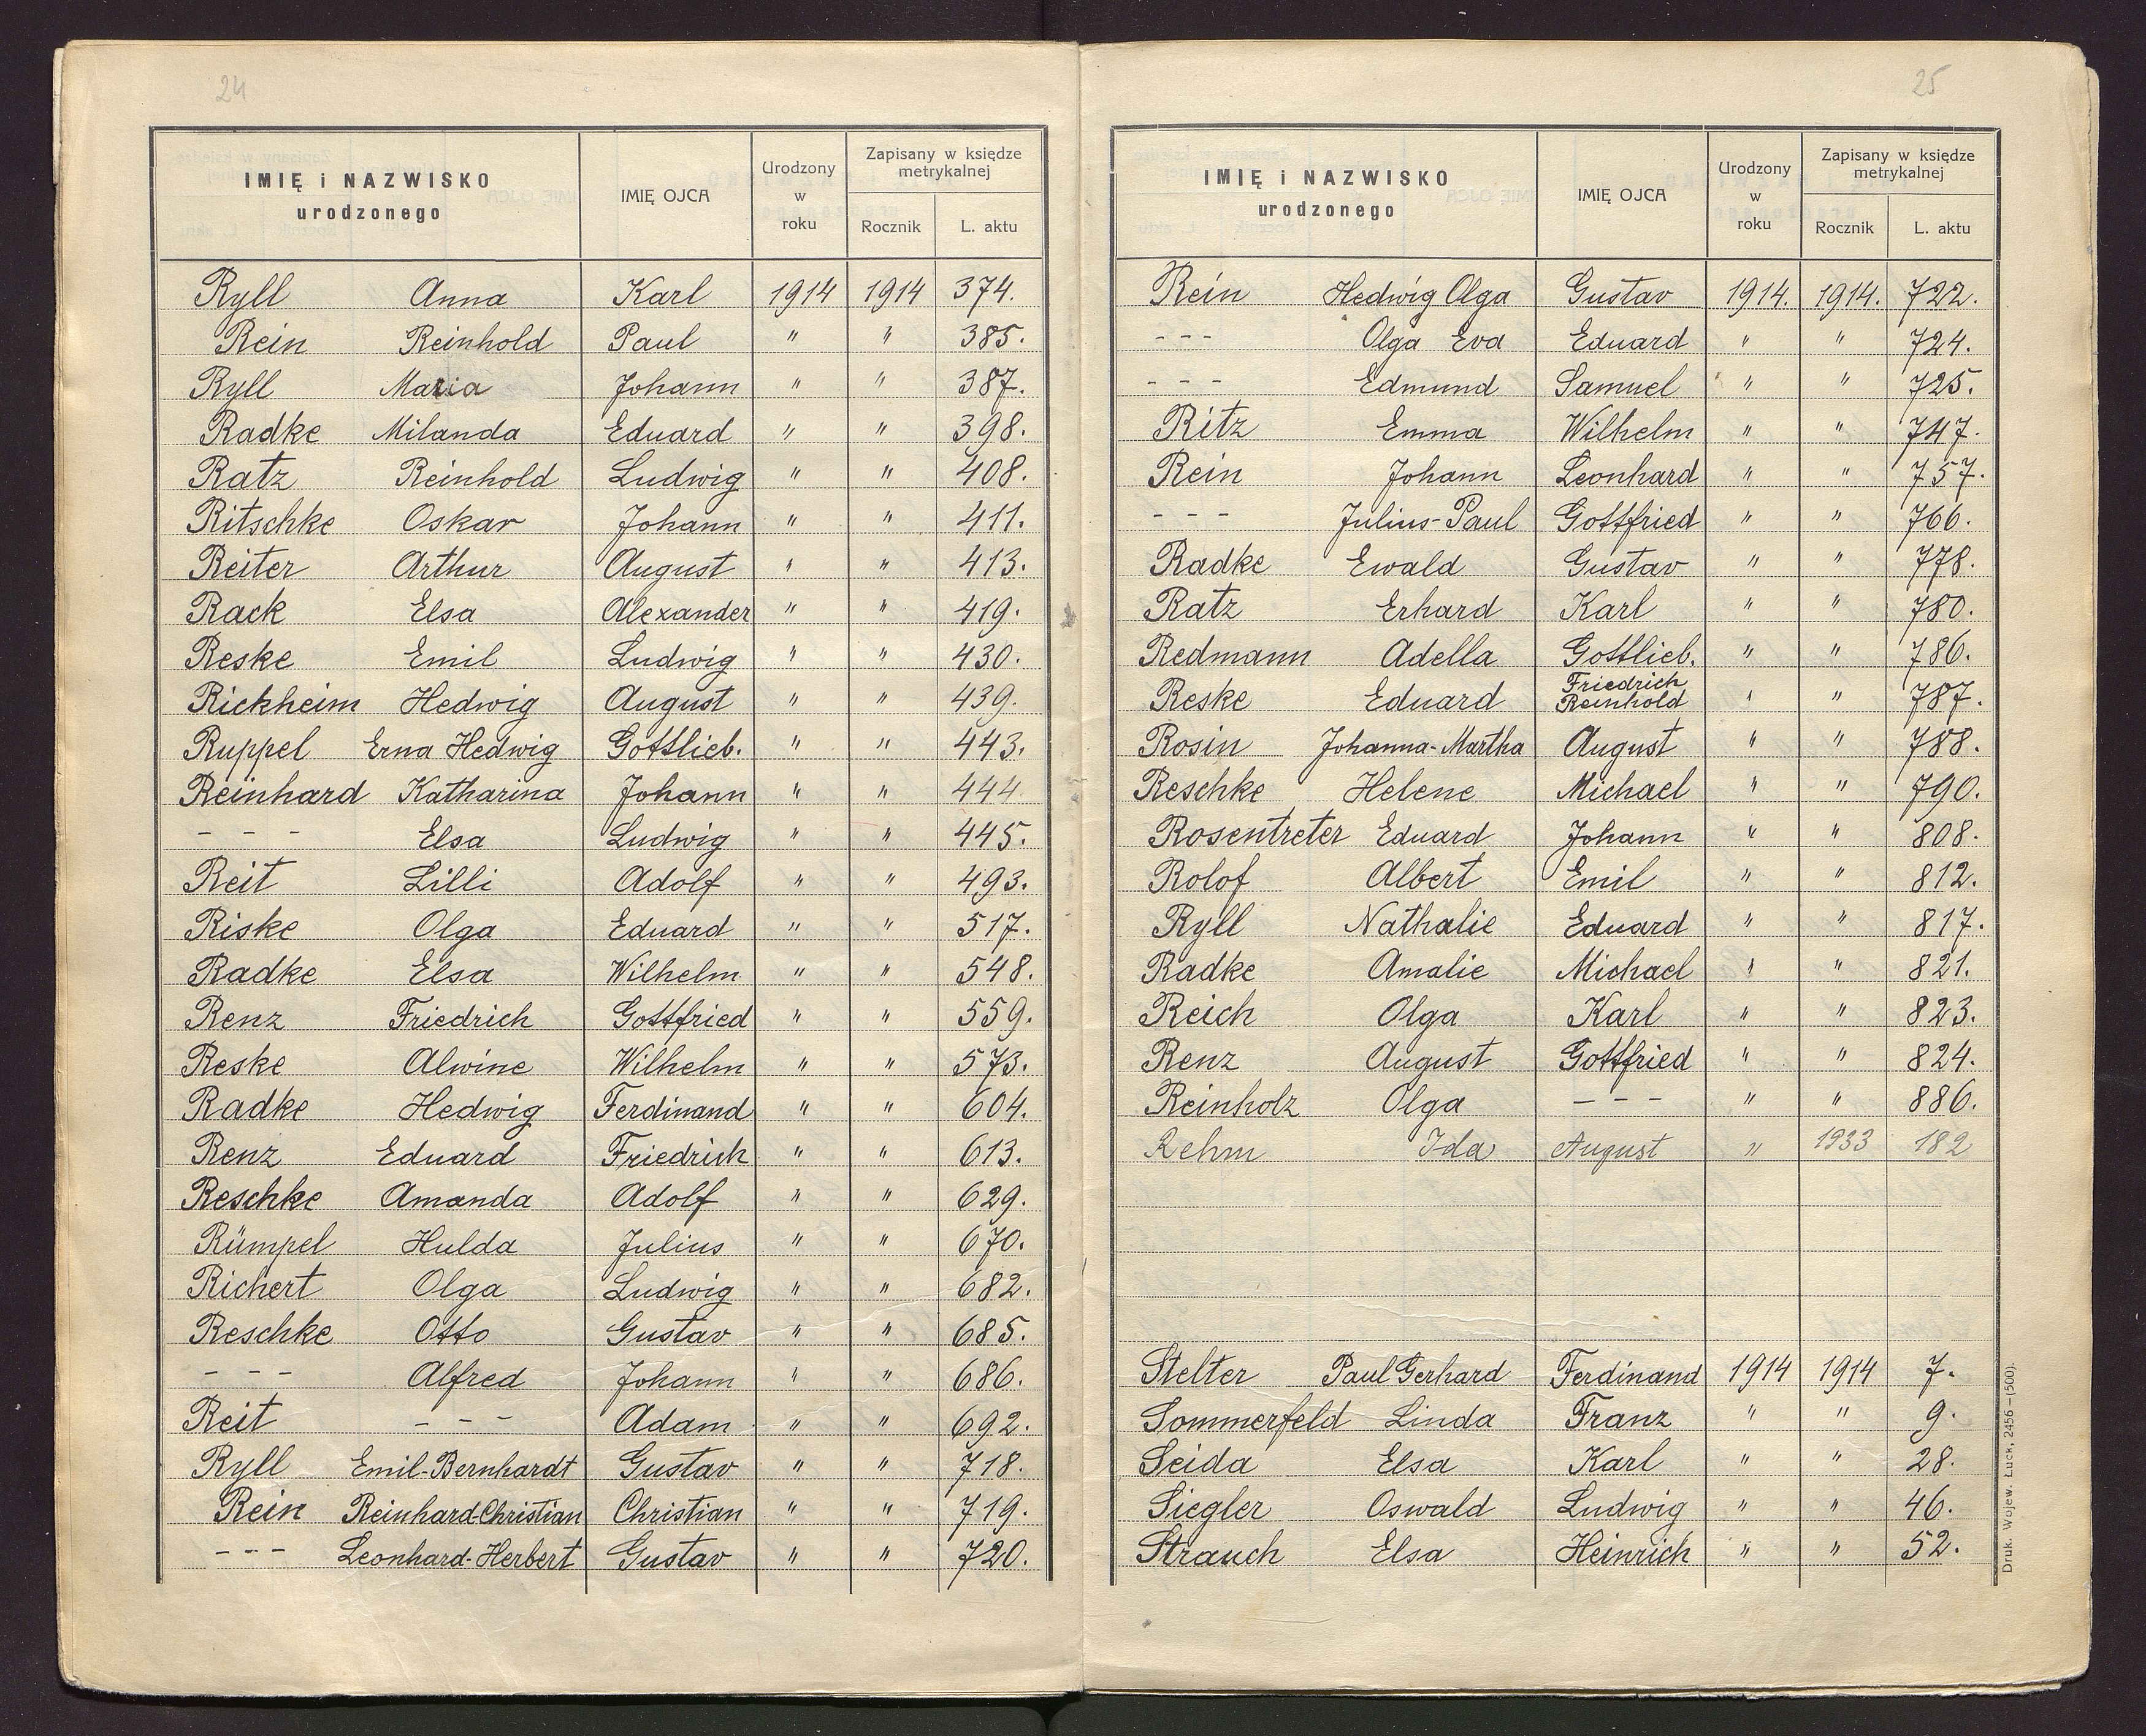 24
IMIĘ i NAZWISKO urodzonego IMIĘ OJCA Urodzony w roku Zapisany w księdze metrykalnej Rocznik L. aktu
Ryll Anna Karl 1914 1914 374.
Rein Reinhold Paul " " 385.
Ryll Maria Johann " " 387.
Radke Milanda Eduard " " 398.
Ratz Reinhold Ludwig " " 408.
Ritschke Oskar Johann " " 411.
Reiter Arthur August " " 413.
Rack Elsa Alexander " " 419.
Reske Emil Ludwig " " 430.
Rickheim Hedwig August " " 439.
Ruppel Erna Hedwig Gottlieb. " " 443.
Reinhard Katharina Johann " " 444
- - - Elsa Ludwig " " 445.
Reit Lilli Adolf " " 493.
Riske Olga Eduard " " 517.
Radke Elsa Wilhelm " " 548.
Renz Friedrich Gottfried " " 559.
Reske Alwine Wilhelm " " 573.
Radke Hedwig Ferdinand " " 604.
Renz Eduard Friedrich " " 613.
Reschke Amanda Adolf " " 629.
Rümpel Hulda Julius " " 670.
Richert Olga Ludwig " " 682.
Reschke Otto Gustav " " 685.
- - - Alfred Johann " " 686.
Reit - - - Adam " " 692.
Ryll Emil-Bernhardt Gustav " " 718.
Rein Reinhard-Christian Christian " " 719.
- - - Leonhard-Herbert Gustav " " 720.
25
IMIĘ i NAZWISKO urodzonego IMIĘ OJCA Urodzony w roku Zapisany w księdze metrykalnej Rocznik L. aktu
Rein Hedwig Olga Gustav 1914. 1914. 722.
- - - Olga Eva Eduard " " 724.
- - - Edmund Samuel " " 725.
Ritz Emma Wilhelm " " 747.
Rein Johann Leonhard " " 757.
- - - Julius-Paul Gottfried " " 766.
Radke Ewald Gustav " " 778.
Ratz Erhard Karl " " 780.
Redmann Adella Gottlieb. " " 786.
Reske Eduard Friedrich Reinhold " " 787.
Rosin Johanna-Martha August " " 788.
Reschke Helene Michael " " 790.
Rosentreter Eduard Johann " " 808.
Rolof Albert Emil " " 812.
Ryll Nathalie Eduard " " 817.
Radke Amalie Michael " " 821.
Reich Olga Karl " " 823.
Renz August Gottfried " " 824.
Reinholz Olga - - - " " 886.
Rehm Ida August " 1933 182
Stelter Paul Gerhard Ferdinand 1914 1914 7.
Sommerfeld Linda Franz " " 9.
Seida Elsa Karl " " 28.
Siegler Oswald Ludwig " " 46.
Strauch Elsa Heinrich " " 52.
Druk. Wojew. Łuck, 2456-(500).